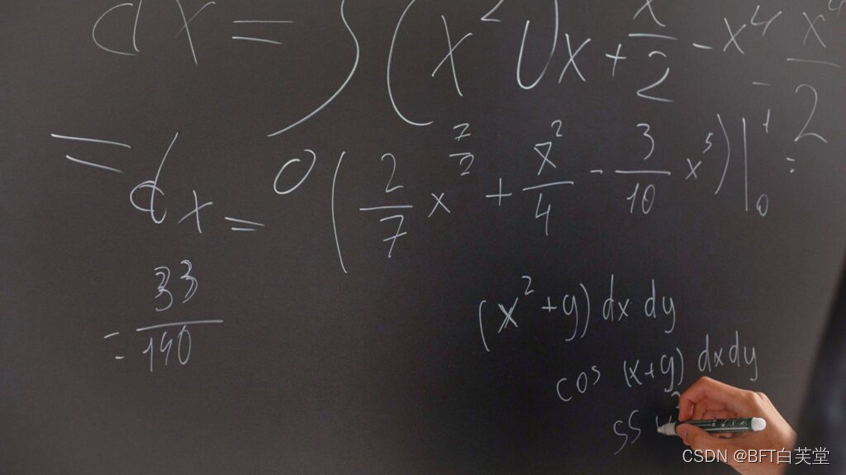 dx = ∫(x²√x + x/2 - x⁴ - x⁴/2
= dx = 0 (2/7 x^7/2 + x²/4 - 3/10 x⁵)|¹₀ =
= 33/140
(x²+y) dx dy
cos (x+y) dxdy
SS
CSDN @BFT白芙堂